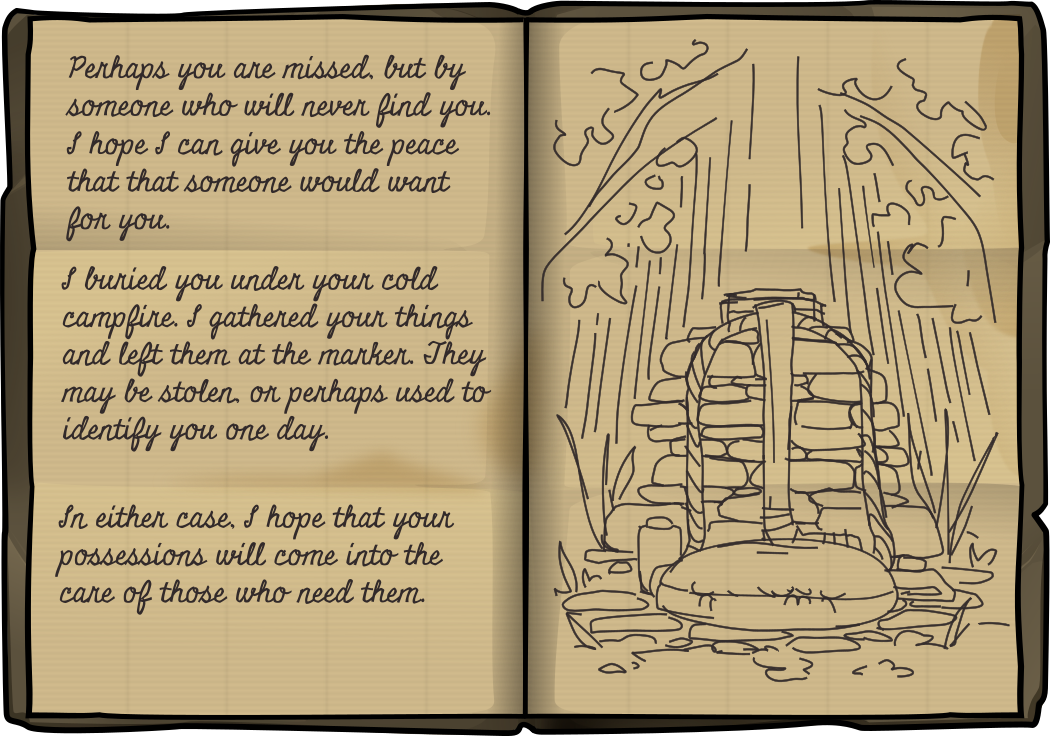 Perhaps you are missed, but by
someone who will never find you.
I hope I can give you the peace
that that someone would want
for you.
I buried you under your cold
campfire. I gathered your things
and left them at the marker. They
may be stolen, or perhaps used to
identify you one day.
In either case, I hope that your
possessions will come into the
care of those who need them.